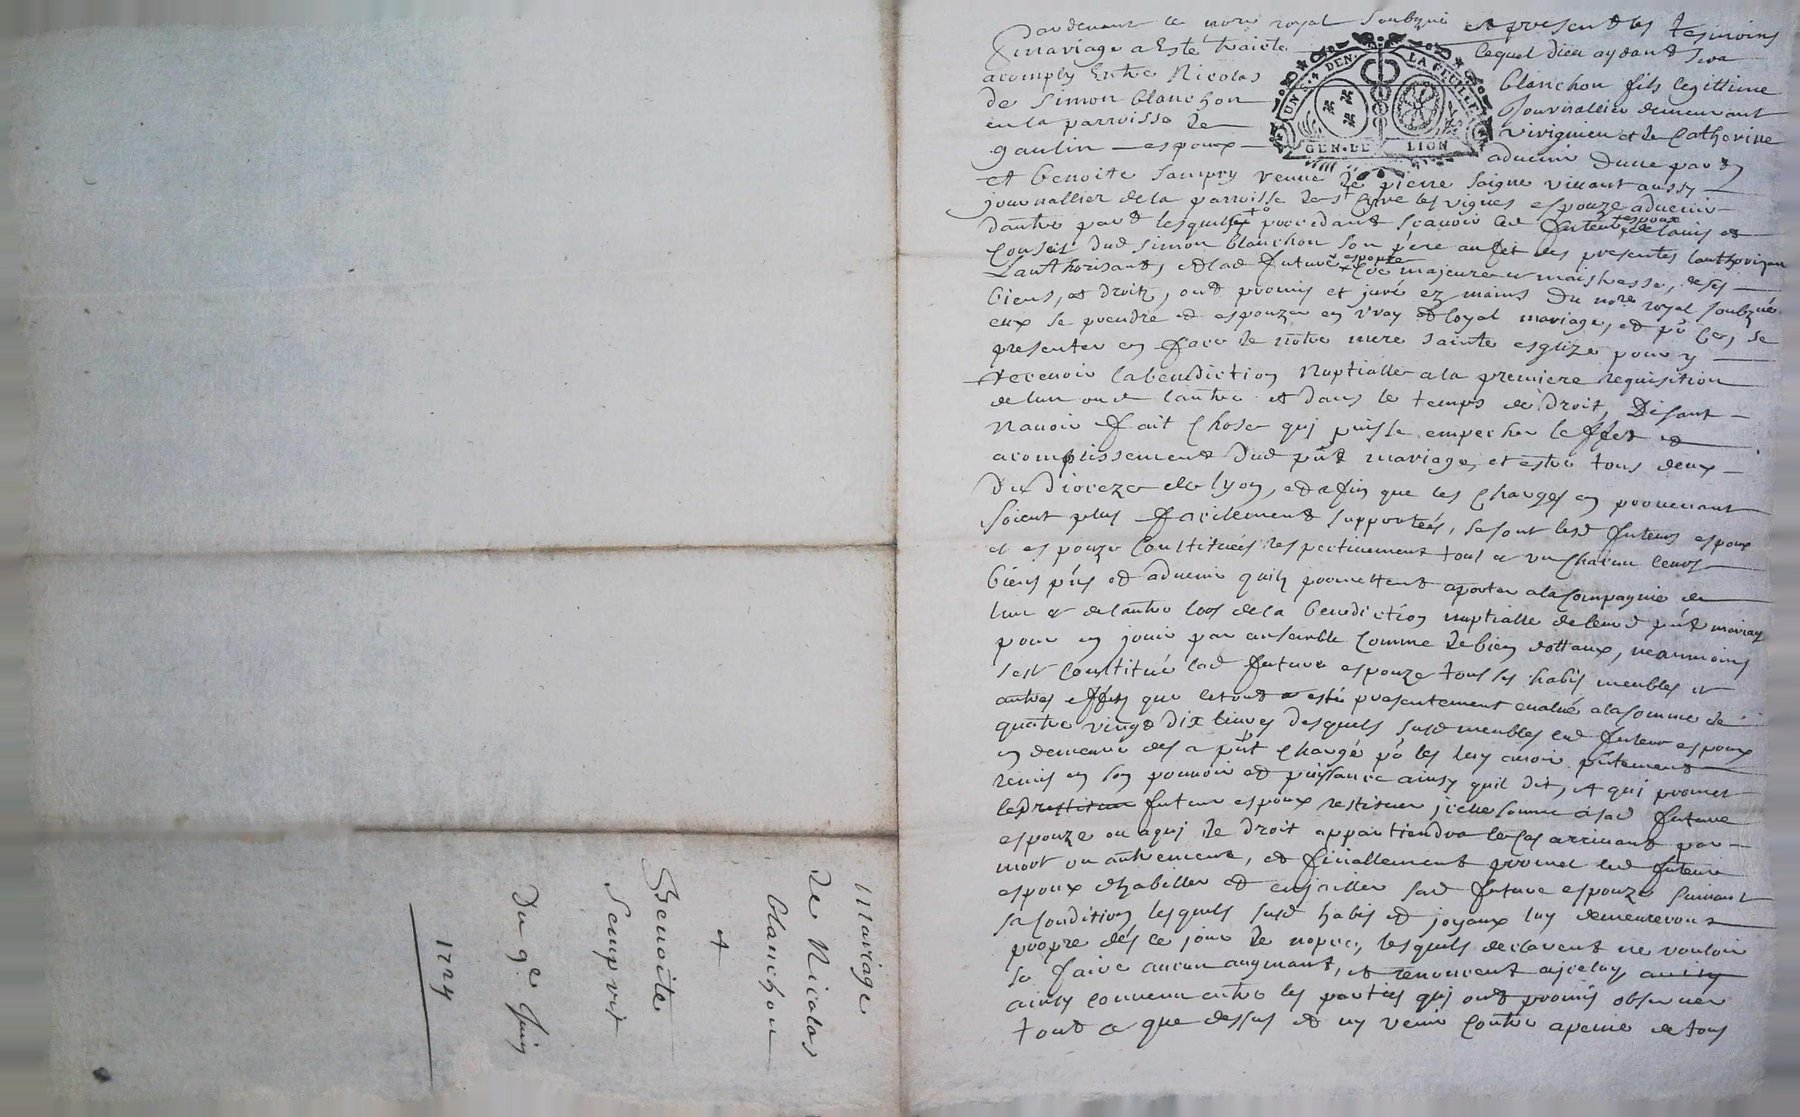 Pardevant le notre royal soubzné et presents les tesmoins
mariage a este traicté lequel dieu aydant sera
acomply Entre Nicolas blanchon fils legittime
de Simon blanchon Journallier demeurant
en la parroisse de virignieu et de Catherine
gaulin espoux advenir dune part
et benoite Sampry veuve de pierre Soigne vivant aussy
journallier de la parroisse de st Cyre les vignes espouze advenir
dautre part lesquelles procedant scavoir led futeur espoux de lavis et
Conseil dud Simon blanchon son père au fet des presentes lauthorizan
Lauthorisant, et lad future espouze Coe majeure et maistresse, de ses
biens, et droits, ont promis et juré ez mains du nore royal soubzné
eux se prendre et espouzer en vray et loyal mariage, et pr ce, se
presenter en face de nôtre mere sainte esglize pour y
recevoir la benediction Nuptialle a la premiere requisition
de lun ou de lautre et dans le temps de droit, Disant
Navoir fait Chose qui puisse empecher leffet et
acomplissement dud pnt mariage, et estre tous deux
du dioceze de lyon, et afin que les Charges en provenant
soient plus facilement supportées, se sont lesd futeurs espoux
et espouze Constitués respectivement tous et un Chacun leurs
biens pns et advenir quils promettent aporter a la Compagnie de
lun et de lautre lors de la benediction nuptialle de leurd pnt mariage
pour en jouir par ensemble Comme de bien dottaux, neanmoins
sest Constitué lad future espouze tous ses habis meubles et
autres effets que le tout a esté presentement evalué a la somme de
quatre vingt dix livres desquels susd meubles led futeur espoux
en demeure des a pnt Chargé pr les luy avoir pntement
remis en son pouvoir et puissance ainsy quil dit, et qui promet
led restituer futeur espoux restituer jcelle somme a sad future
espouze ou a qui de droit appartiendra le Cas arrivant par
mort ou autrement, et finallement promet led futeur
espoux dhabiller et enjoialler sad future espouze suivant
sa Condition lesquels susd habis et joyaux luy demeureront
propre dés ce jour de nopce, lesquels declarent ne vouloir
se faire aucun augmant, et renoncent a jceluy, ainsy
ainsy convenu entre les parties qui ont promis observer
tout ce que dessus et ny venir Contre a peine de tous
UN S. 4 DEN. LA FEUILLE
GEN. DE LION
Mariage
de Nicolas
blanchon
et
Benoite
Sempryt
Du 9e Juin
1724